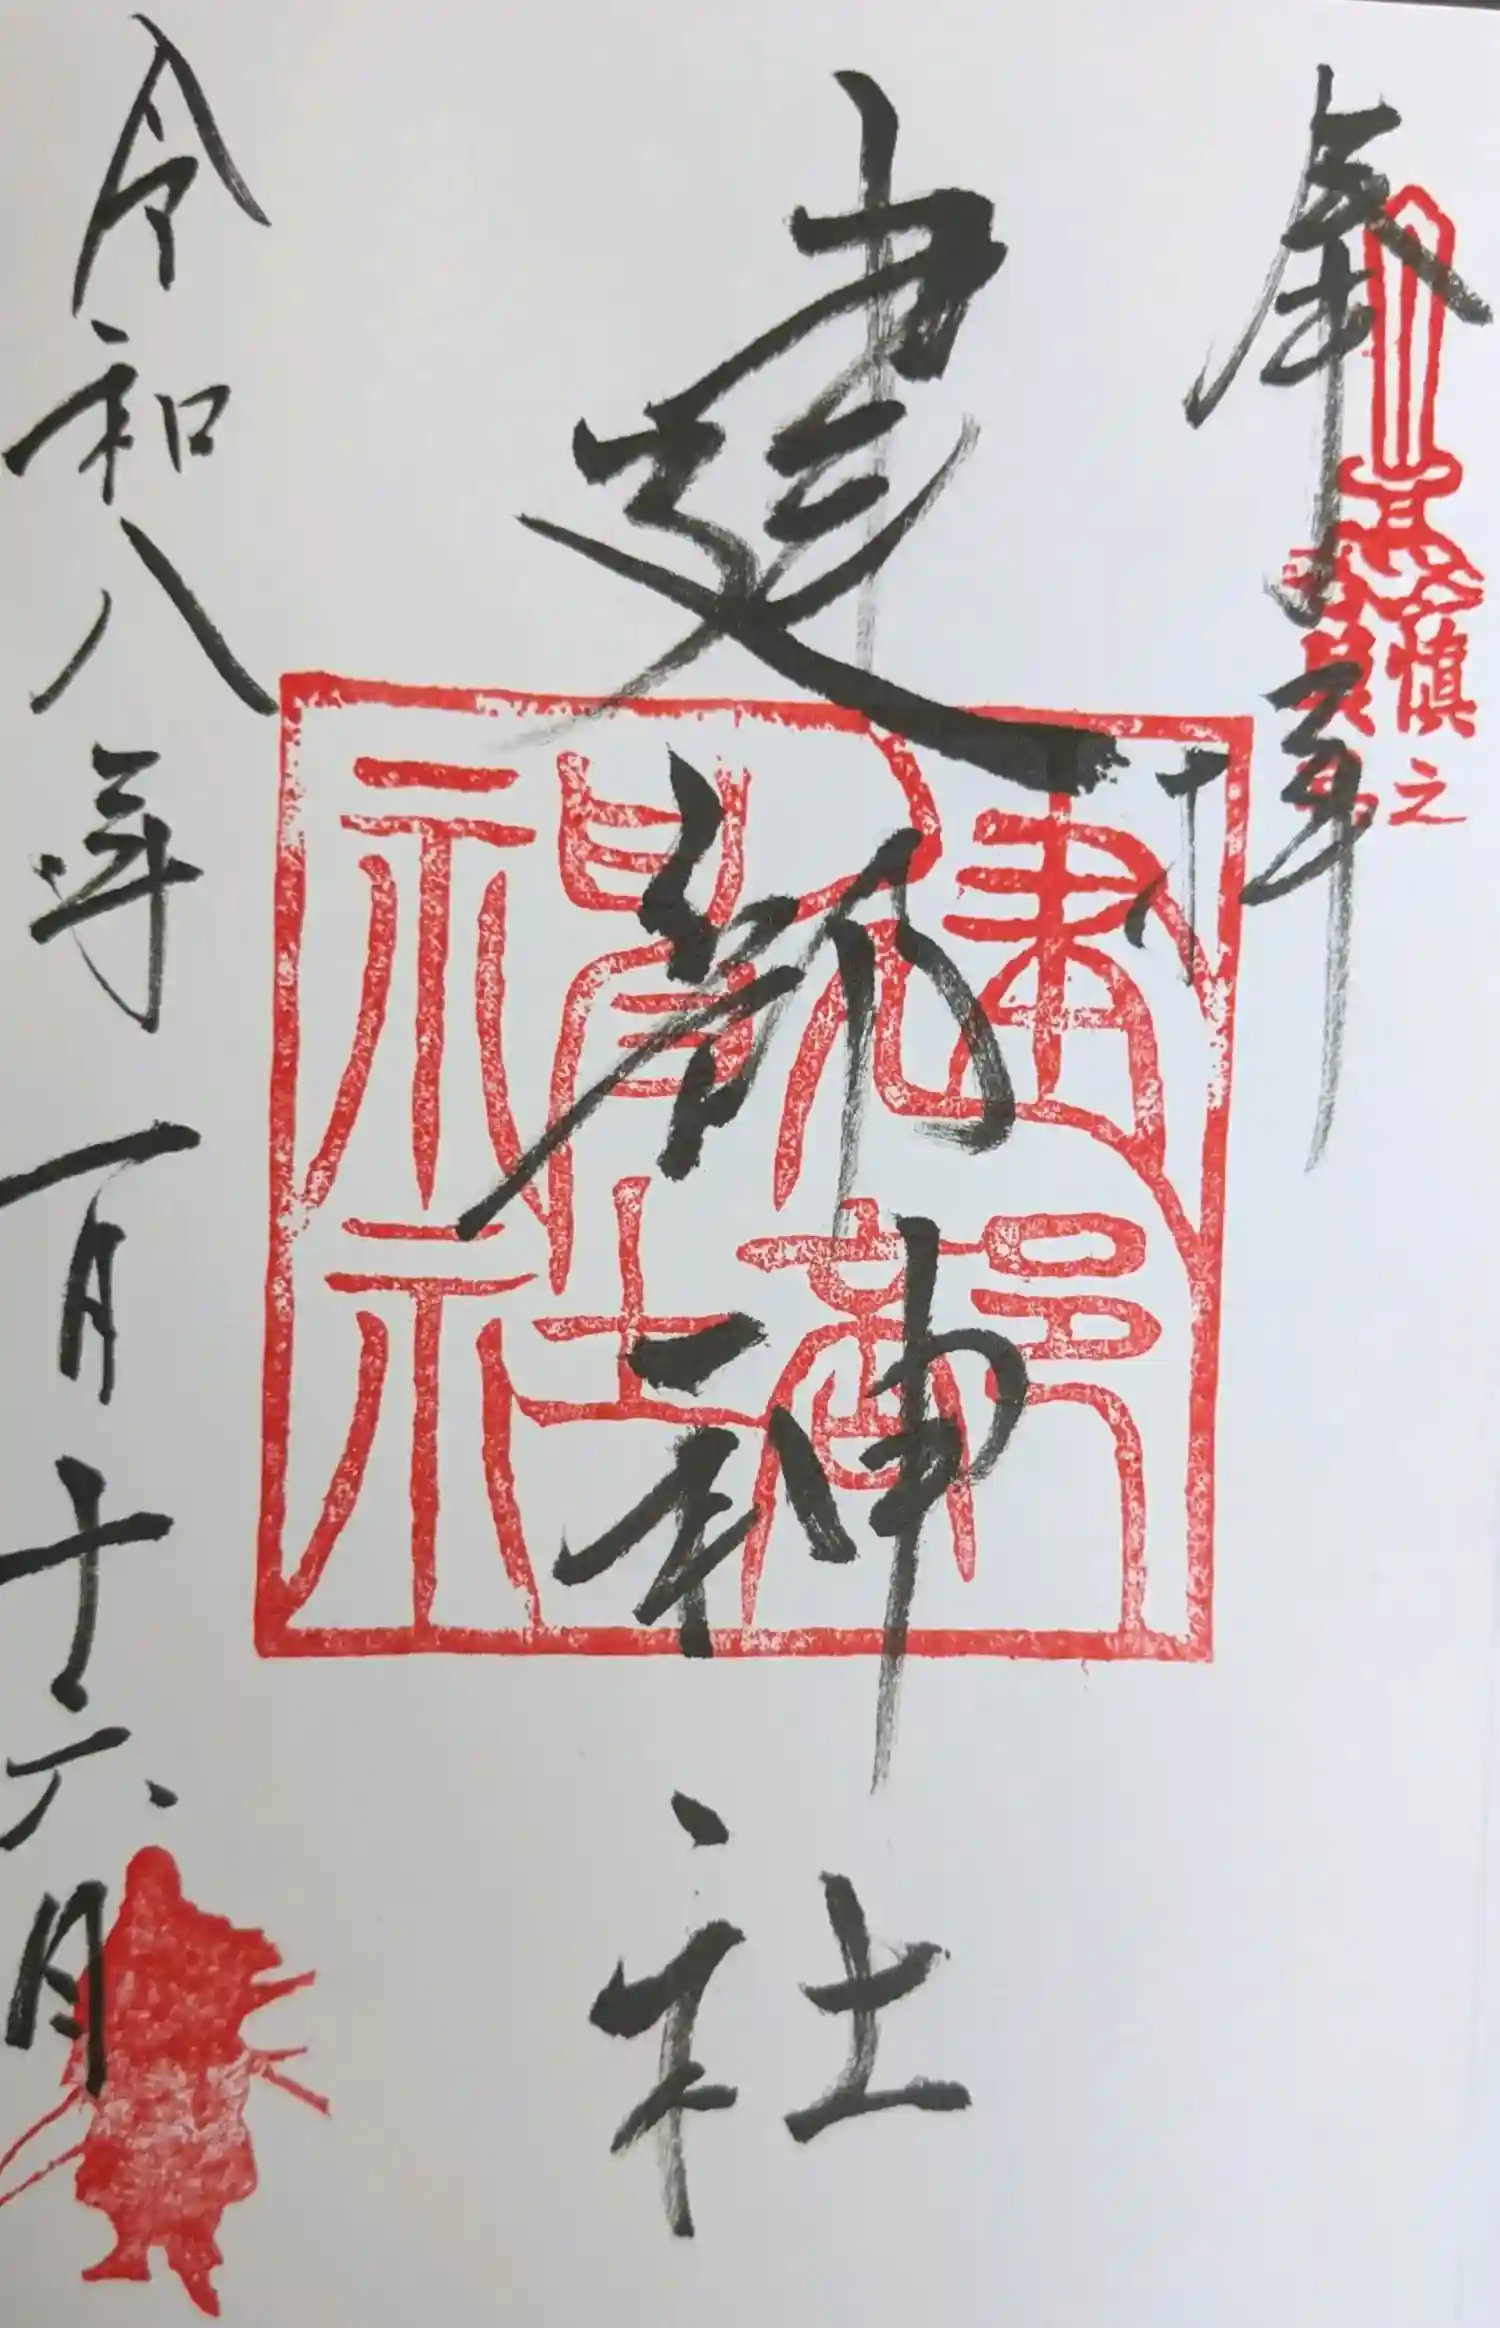 奉拝
慎之
建部神社
建部神社
令和八年一月十六日